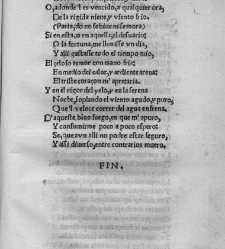 O, adonde l es vencido, y qualquier ora,
De la rigida nieve, y viento frio,
(Parte, dō no se sabe ni se mora)
Si en esta, o en aquella, el desuario;
O la fortuna, me llevasse vn dia,
Y alli gastasse todo el tiempo mio,
El celoso temor con mano fria;
En medio del calor, y ardiente arena;
El triste coraçon m' apretaria.
Y en el rigor del yelo, y en la serena
Noche, soplando el viento agudo, y puro,
Que'l veloce correr del agua enfrena,
D'aqueste bivo fuego, en que m'apuro,
Y consumirme poco a poco espero;
Se, que aun alli no podre estar seguro,
Y assi diverso, entre contrarios muero,
FIN,